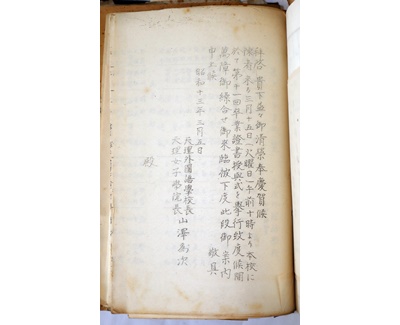 拝啓 貴下益々御清栄奉慶賀候
陳者来る三月十五日(火曜日)午前十時より本校に
於て第十一回卒業證書授與式を擧行致度候間
萬障御繰合せ御来臨被下度此段御案内
申上候 敬具
昭和十三年三月五日
天理外國語學校長
天理女子學院長 山澤為次
殿